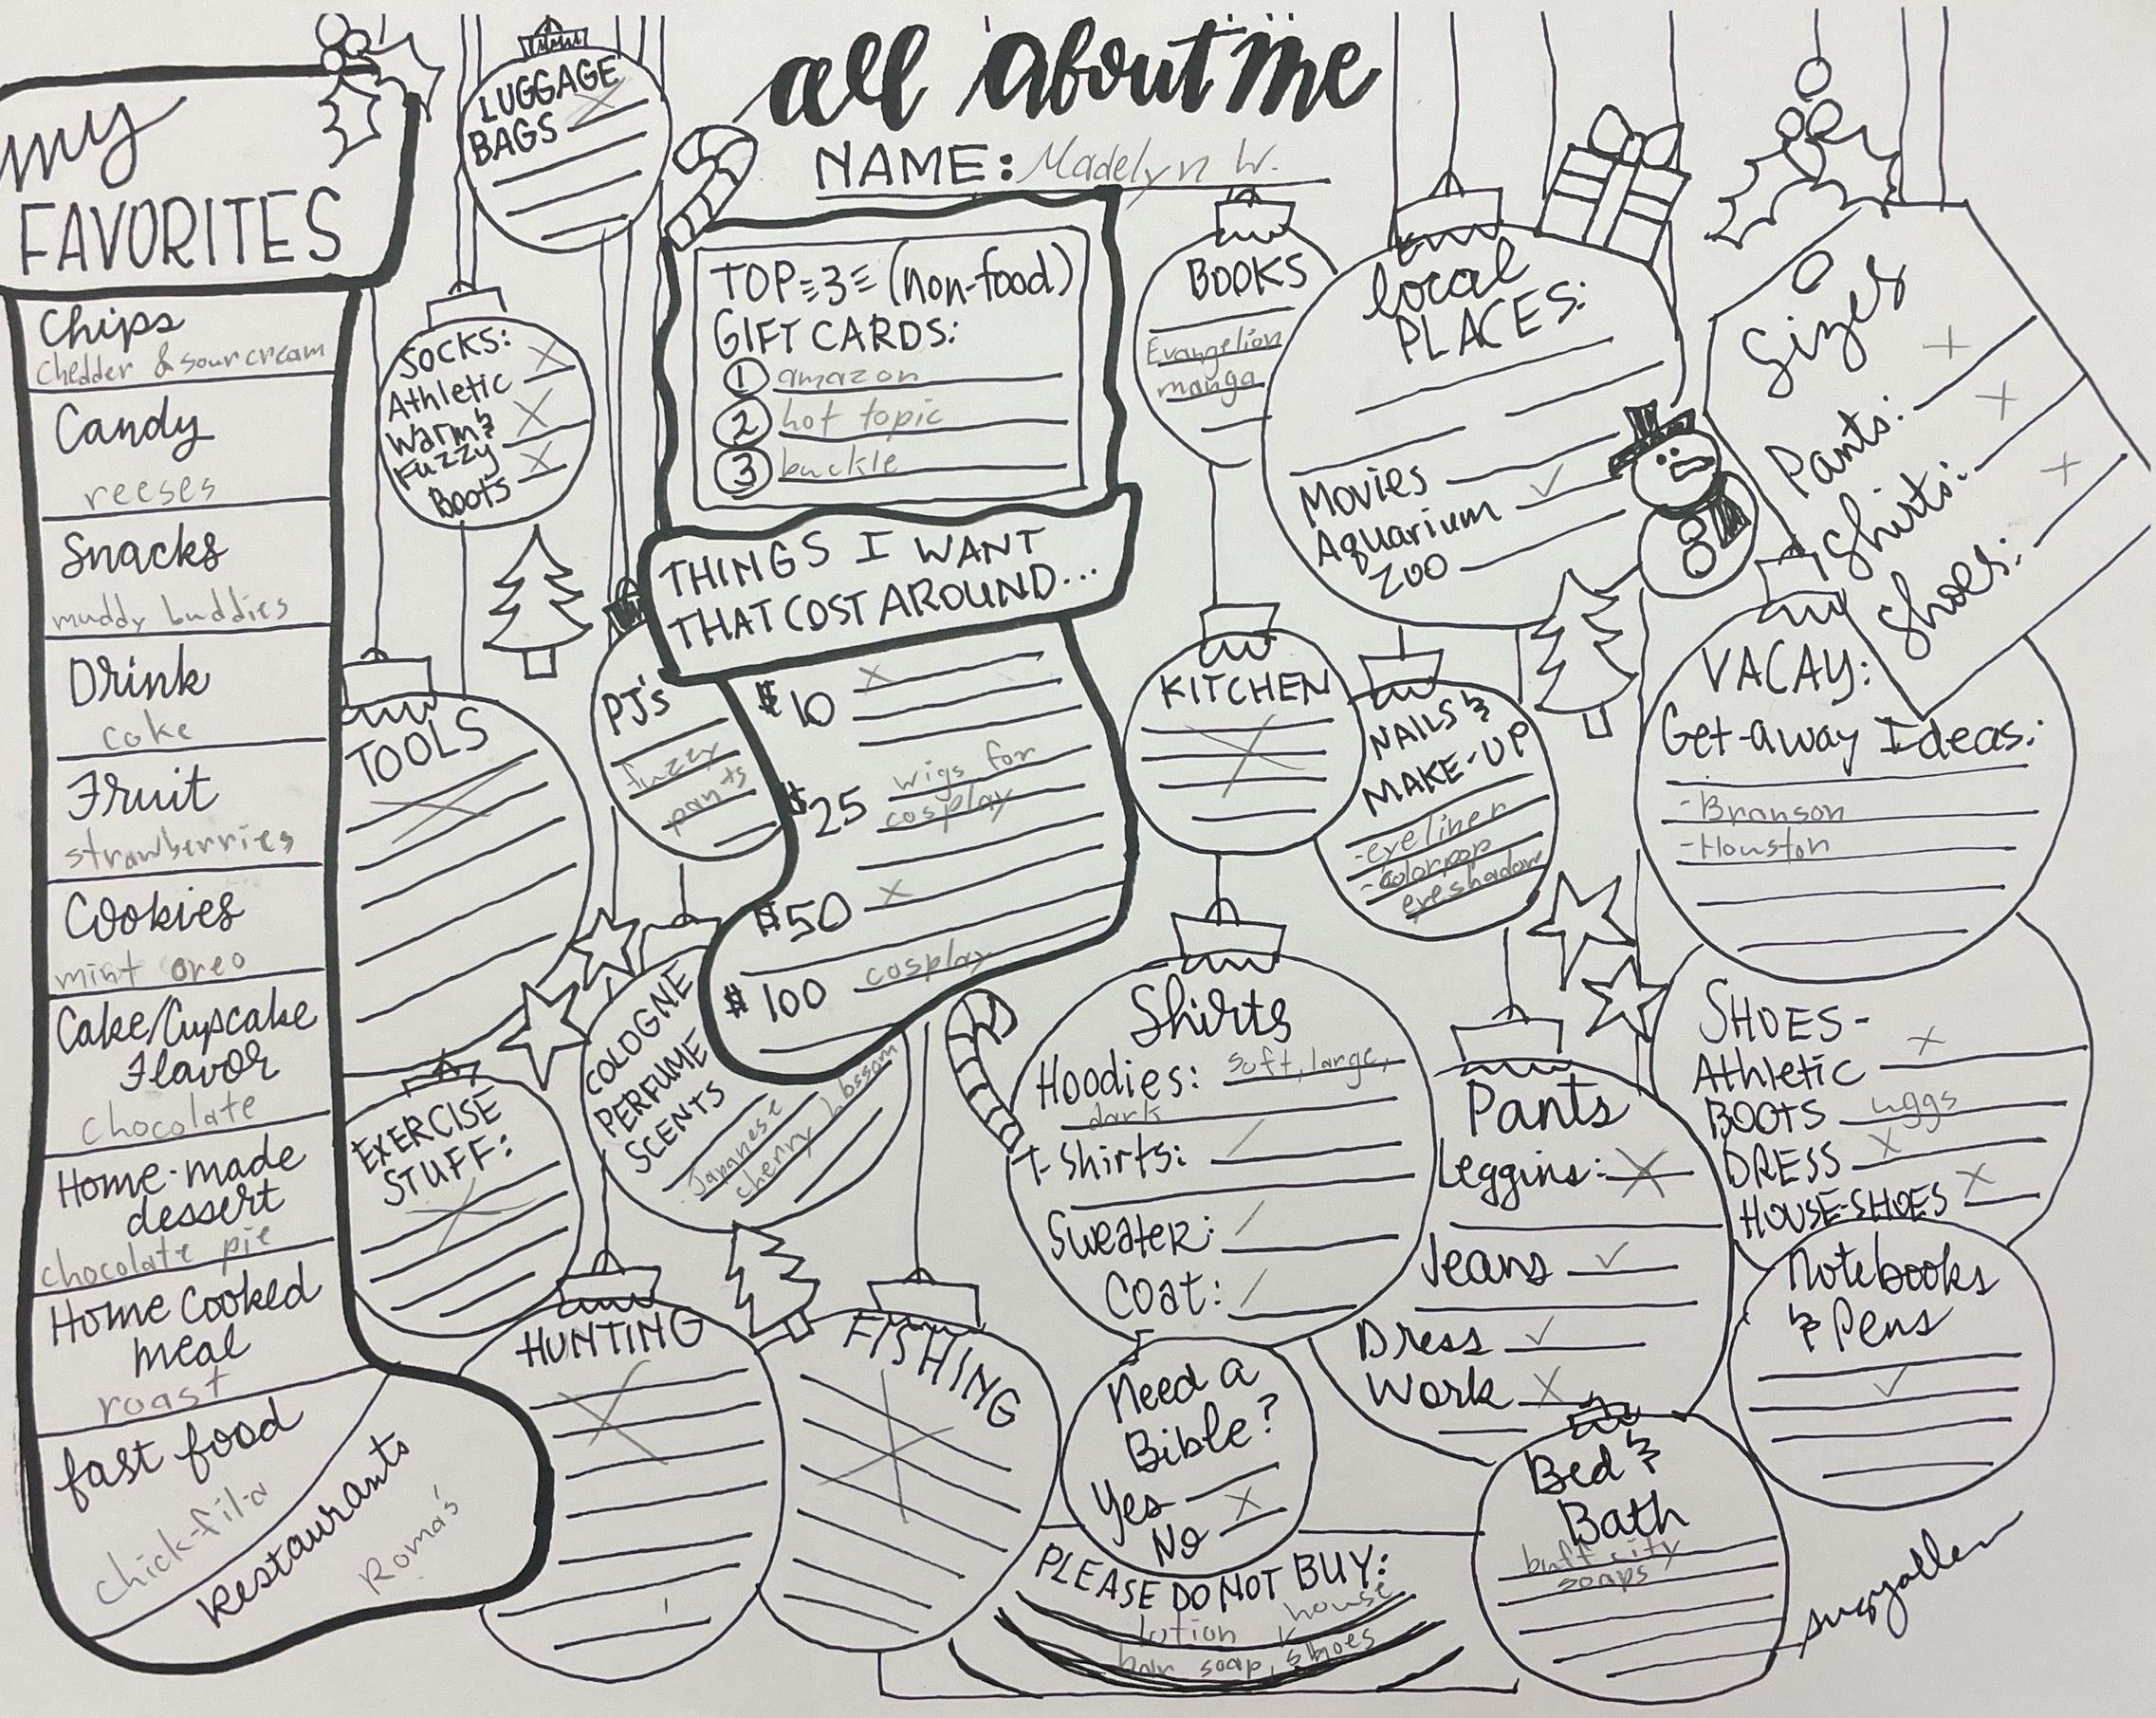 all About me
NAME: Madelyn W.
my
FAVORITES
Chips
chedder & sour cream
Candy
reeses
Snacks
muddy buddies
Drink
coke
Fruit
strawberries
Cookies
mint oreo
Cake/Cupcake
Flavor
chocolate
Home-made
dessert
chocolate pie
Home Cooked
meal
roast
fast food
chick-fil-a
Restaurants
Roma's
LUGGAGE
BAGS X
SOCKS:
Athletic X
Warm &
Fuzzy X
Boots X
TOOLS
X
EXERCISE
STUFF:
X
PJ's
fuzzy
pants
COLOGNE
PERFUME
SCENTS
Japanese
cherry blossom
TOP 3 (non-food)
GIFT CARDS:
1 amazon
2 hot topic
3 buckle
THINGS I WANT
THAT COST AROUND...
$10 X
$25 wigs for
cosplay
$50 X
$100 cosplay
BOOKS
Evangelion
manga
local
PLACES:
Movies
Aquarium ✓
Zoo
Sizes
Pants: X
Shirts: X
Shoes: X
KITCHEN
X
NAILS &
MAKE-UP
-eyeliner
-colorpop
eyeshadow
VACAY:
Get-away Ideas:
-Branson
-Houston
Shirts
Hoodies: soft, large,
dark
T-Shirts: /
Sweater: /
Coat: /
Pants
Leggins: X
Jeans ✓
Dress ✓
Work X
SHOES-
Athletic X
BOOTS uggs
DRESS X
HOUSE-SHOES X
Notebooks
& Pens
✓
HUNTING
X
FISHING
X
Need a
Bible?
Yes
No X
PLEASE DO NOT BUY:
lotion house
bar soap, shoes
Bed &
Bath
buff city
soaps